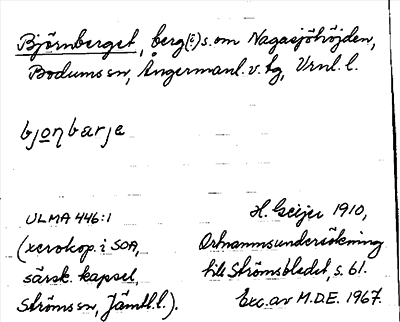 Björnberget, berg(e) s. om Nagasjöhöjden,
Bodums sn, Ångermanl. v. tg, Vrnl. l.
bjo̲ƞbarje
ULMA 446:1
(xerokop. i SOA,
särsk. kapsel,
Ströms sn, Jämtl. l.).
H. Geijer 1910,
Ortnamnsundersökning
till Strömsbladet, s. 61.
Exc. av M.D.E. 1967.